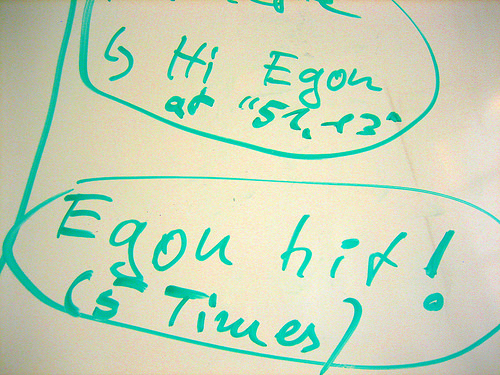 ↳ Hi Egon
at "51, 13"
Egon hit!
(5 Times)